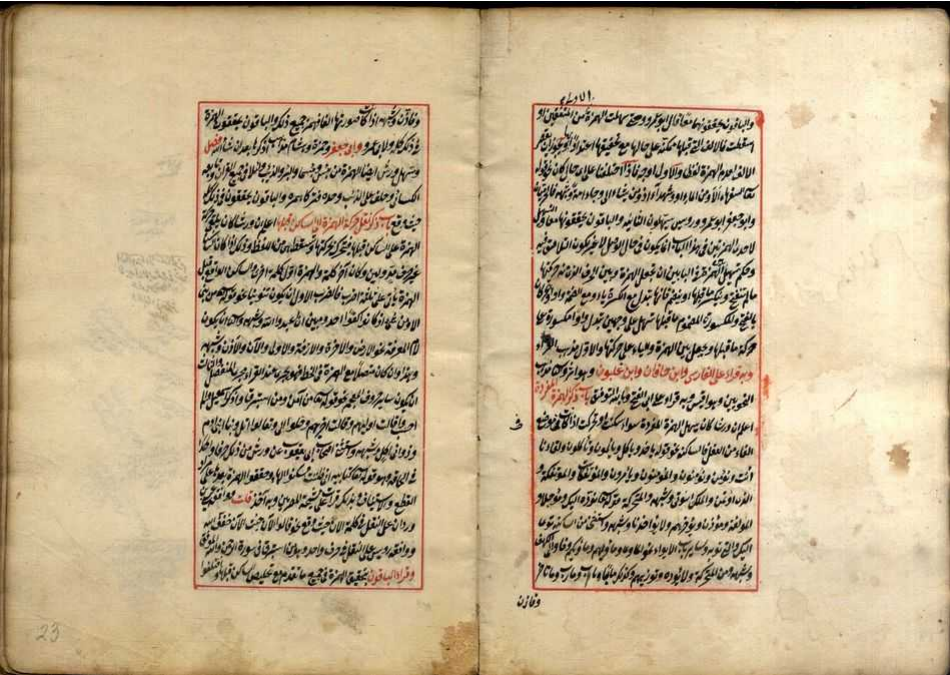 والباقون يحققونهما معا قال ابو عمرو ومتى سهلت الهمزة من المتفقتين او
اسقطت فالالف التي قبلها ممكنة على حالها مع تحقيقها اعتدادا بها ويجوز ان يقصر
الالف لعدم الهمزة لفظا والاول اوجه فاذا اختلفتا على اي حال كان نحو قوله
تعالى السفهاء الا ومن الماء او وشهداء اذ ومن يشاء الى وجاء امة وشبهه فالحرميان
وابو جعفر وابو عمرو ورويس يسهلون الثانية والباقون يحققونهما معا والتسهيل
لاحدى الهمزتين في هذا الباب انما يكون في حال الوصل لا غير لكون التلاصق فيه
وحكم تسهيل الهمزة في البابين ان تجعل الهمزة وبين الحرف الذي منه حركتها
ما لم تنفتح وينكسر ما قبلها او ينضم فانها تبدل مع الكسرة ياء ومع الضمة واوا وتحركان
بالفتح والمكسورة المضموم ما قبلها تسهل على وجهين تبدل واوا مكسورة على
حركة ما قبلها وتجعل بين الهمزة والياء على حركتها والاول مذهب القراء
وبه قرأت على الفارسي وابن خاقان وابن غلبون وهو آثر والثاني مذهب
النحويين وهو اقيس وبه قرأت على ابي الفتح وبالله التوفيق باب ذكر الهمزة المفردة
اعلم ان ورشا كان يسهل الهمزة المفردة سواء سكنت او تحركت اذا كانت في موضع
الفاء من الفعل فالساكنة نحو قوله ياخذ وياكل ويالمون وتاكلون ولقاءنا
ائت ويؤمن ويؤمنون ويؤثرون والمؤتفكات والمؤتفكة و
الذي اؤتمن والملك ائتوني وشبهه والمتحركة نحو قوله يؤده اليك ومؤجلا و
المؤلفة ومؤذن ويؤخرهم ولا يؤاخذنا وشبهه واستثنى من الساكنة تؤوي
اليك والتي تؤويه وسائر باب الايواء نحو الماوى وماواهم وماواكم وفاووا الى الكهف
وشبهه ومن المتحركة ولا يؤده وتؤزهم وكذلك مآبا ومآب ومآرب وما تاخر
وفاذن
وفاذن وشبهه اذا كانت صورتها الفا فهمز جميع ذلك والباقون يحققون الهمزة
في ذلك كله ولابي عمرو وابي جعفر وحمزة وهشام مذاهب اذكرها بعد ان شاء الله فصل
وسهل ورش ايضا الهمزة من بئس وبئسما والبئر والذئب ولئلا في جميع القرآن وتابعه
الكسائي وخلف على الذئب وحده فترك همزه والباقون يحققون في ذلك
حيث وقع باب ذكر نقل حركة الهمزة الى الساكن قبلها اعلم ان ورشا كان يلقي حركة
الهمزة على الساكن قبلها فيتحرك بحركتها وتسقط هي من اللفظ وذلك اذا كان الساكن
غير حرف مد ولين وكان آخر كلمة والهمزة اول كلمة اخرى والساكن الواقع قبل
الهمزة ياتي على ثلاثة اضرب فالضرب الاول ان يكون تنوينا نحو قوله من نبي
الا ومن شيء اذ كانوا كفوا احد ومبين ان اعبدوا الله وشبهه والثاني ان يكون
لام المعرفة نحو الارض والآخرة والازفة والاولى والآن والاذن وشبهه
وهذا وان كان متصلا مع الهمزة في الخط فهو يجري عند القراء مجرى المنفصل والثالث
ان يكون سائر حروف المعجم نحو قوله تعالى من آمن ومن استبرق واذكر اسمعيل والم
احسب وقالت اولاهم وقالت اخراهم وخلوا الى وتعالوا اتل ونبأ ابني آدم
وذواتي اكل وشبهه واستثنى اصحاب ابي يعقوب عن ورش من ذلك حرفا واحدا
في الحاقة وهو قوله تعالى كتابيه اني ظننت فسكنوا الهاء وحققوا الهمزة بعدها على
القطع والاستيناف وبذلك قرأت على مشيخة المصريين وبه آخذ قلت
وردان على النقل في كلمة الآن حيث وقع نحو قالوا الآن حيث الآن خفف الله
ووافقه رويس على النقل في حرف واحد وهو من استبرق في سورة الرحمن والله الموفق
وقرأ الباقون بتحقيق الهمزة في جميع ما تقدم مع تخليص الساكن قبلها واختلفوا
23